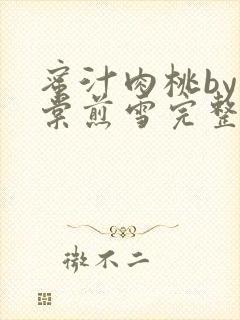 蜜汁肉桃by
棠煎雪完整
微不二